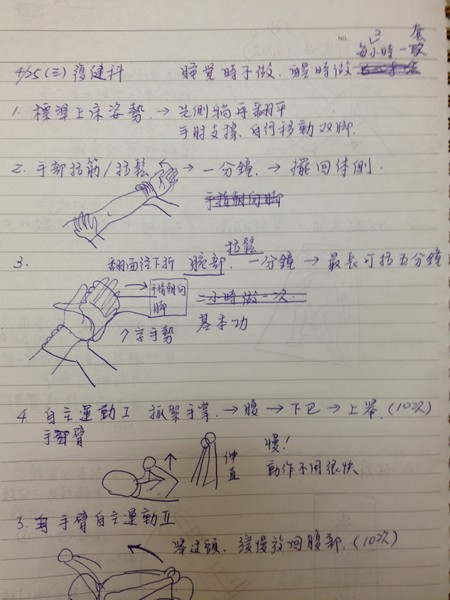 每小時一次
4/25(三) 復健科 睡覺時不做,醒時做
1. 標準上床姿勢 → 先側躺再翻平
手肘支撐,自行移動双脚.
2. 手部拉筋/拉鬆 → 一分鐘. → 擺回体側
手指朝向脚
3. 翻面往下折 腕部. 一分鐘 → 最長可拉五分鐘
手指朝向
脚
二小時做一次.
基本功
手勢
4. 自主運動I 抓緊手掌. → 腹 → 下巴 → 上舉. (10次)
手臂
伸直
慢!
動作不用很快
5. 手臂自主運動II
舉过頭、緩慢放回腹部. (10次)